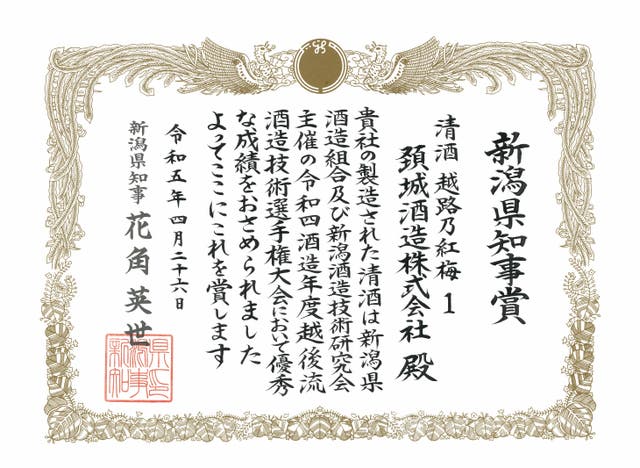 新潟県知事賞
清酒 越路乃紅梅 1
頚城酒造株式会社 殿
貴社の製造された清酒は新潟県
酒造組合及び新潟酒造技術研究会
主催の令和四酒造年度越後流
酒造技術選手権大会において優秀
な成績をおさめられました
よってここにこれを賞します
令和五年四月二十六日
新潟県知事 花角英世
新潟県知事印